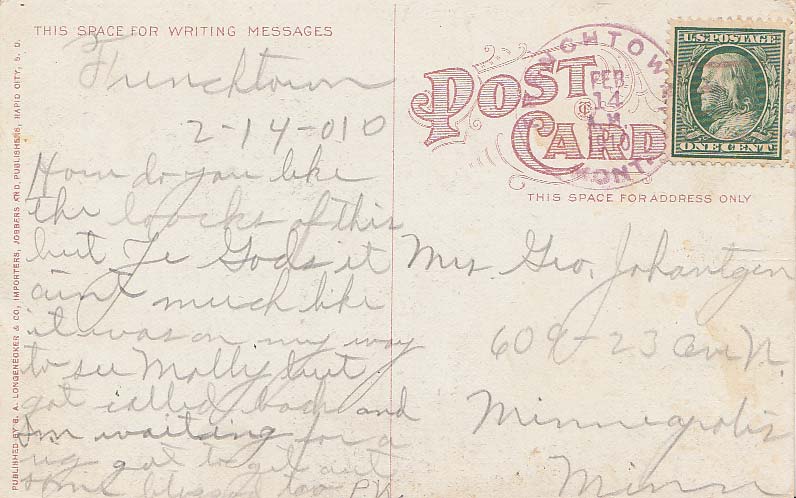 THIS SPACE FOR WRITING MESSAGES
Frenchtown
2-14-010
How do you like
the loocks of this
but Ye Gods it
aint much like
it was on my way
to see Molly but
got called back and
Im waiting for a
got to get out
some blessed too
POST
CARD
FEB
14
MONT.
U.S. POSTAGE
ONE CENT
THIS SPACE FOR ADDRESS ONLY
Mrs. Geo. Johantgen
609-23 Ave N.
Minneapolis
Minn
PUBLISHED BY B. A. LONGENECKER & CO, IMPORTERS, JOBBERS AND PUBLISHERS, RAPID CITY, S. D.